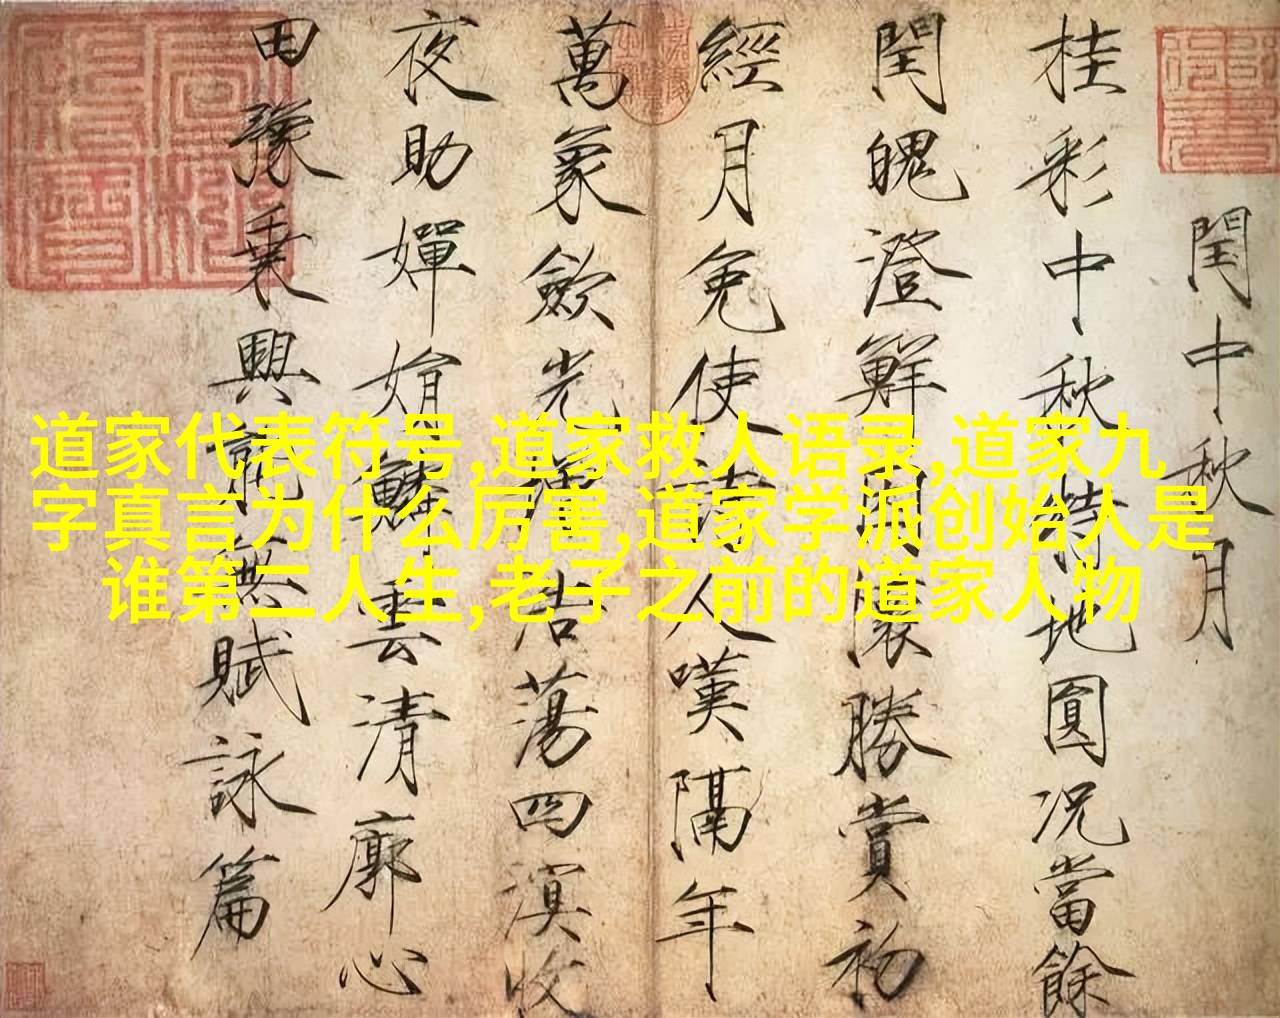 閏中秋月
桂彩中秋特地圓況當餘
閏魄澄鮮因懷勝賞初
經月免使詩人嘆隔年
萬象歛光增浩蕩四溟收
夜助嬋娟鱗雲清廓心
田豫乗興能無賦詠篇
道家代表符号,道家救人语录,道家九
字真言为什么厉害,道家学派创始人是
谁第二人生,老子之前的道家人物